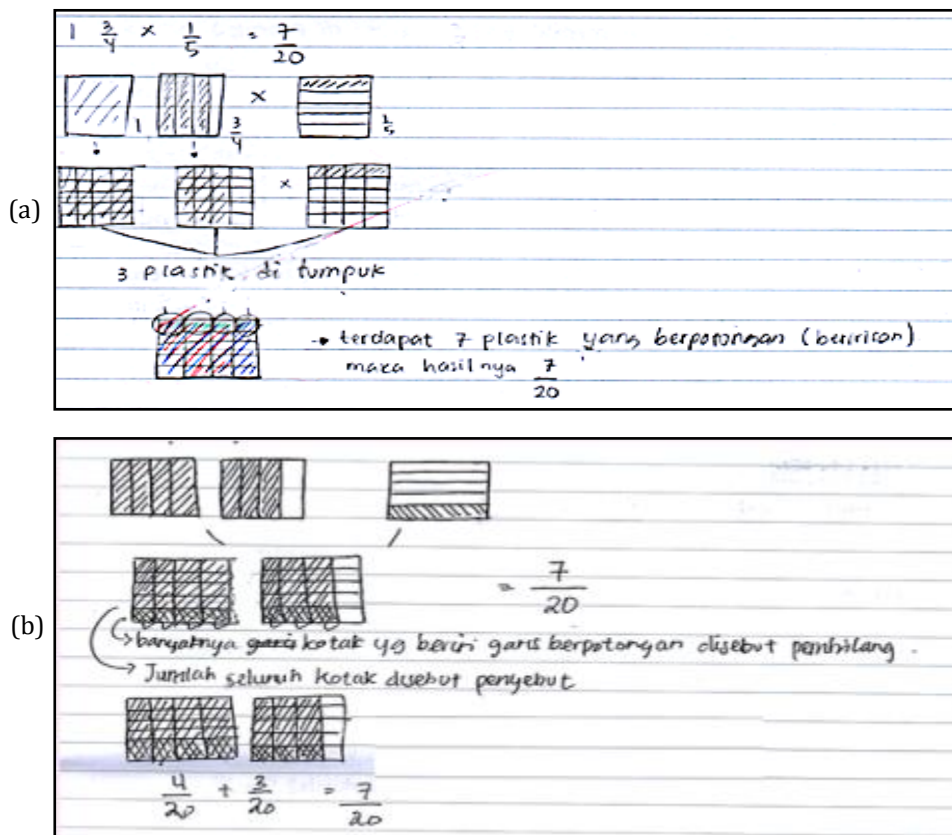 (a)
1 3/4 × 1/5 = 7/20
1 3/4 × 1/5
×
3 plastik di tumpuk
• terdapat 7 plastik yang berpotongan (beririsan)
maka hasilnya 7/20
(b)
= 7/20
banyaknya garis kotak yg beriri garis berpotongan disebut pembilang.
Jumlah seluruh kotak disebut penyebut
4/20 + 3/20 = 7/20